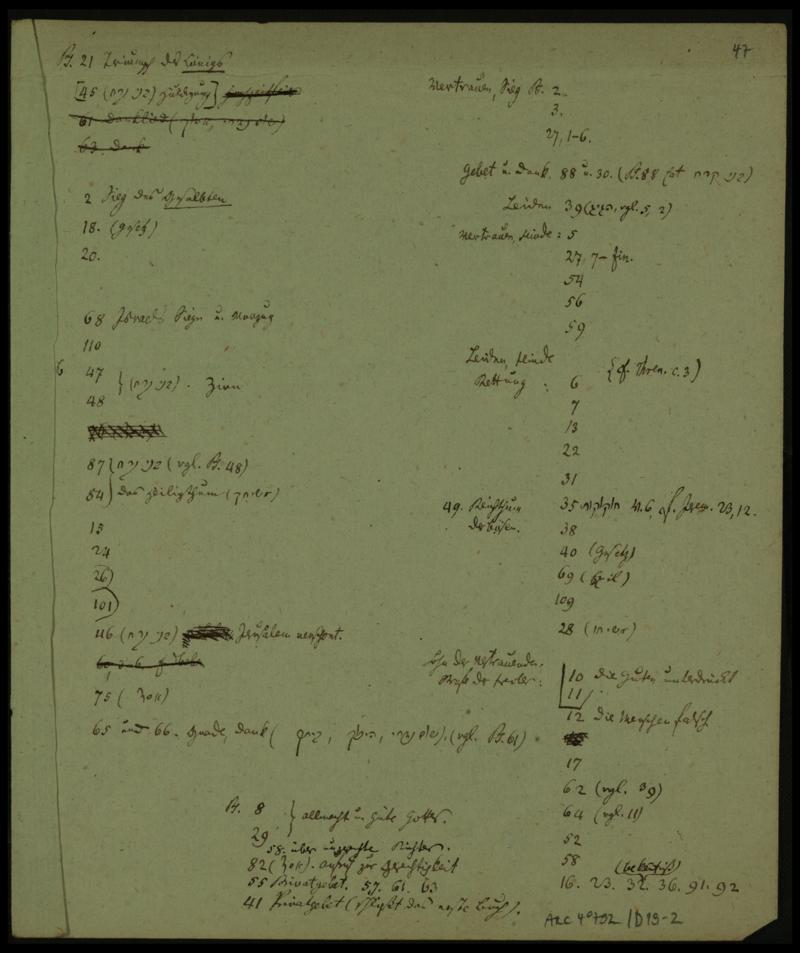 47
Ps. 21 Triumph des Königs
[45 (בני קרח) Huldigung]
61 Danklied
63. Dank
2 Sieg des Gesalbten
18. (Gesetz)
20.
68 Israels Sieger u.
110
6 47
48 } (בני קרח). Zion
87 } בני קרח (vgl. Ps. 48)
84 } das Heiligthum
15
24
26)
101)
46 (בני קרח) Jerusalem verschont.
75 (אסף)
65 und 66. Gnade, Dank ( (vgl. Ps. 61)
Ps. 8
29 } Allmacht u. Güte Gottes.
58. über ungerechte Richter.
82 (אסף). Aufruf zur Gerechtigkeit
55 Privatgebet. 57. 61. 63
41 Privatgebet (schließt das erste Buch).
Vertrauen, Sieg Ps. 2
3.
27, 1-6.
Gebet u. Dank. 88 u. 30. (Ps. 88 hat בני קרח)
Leiden 39 (vgl. 5, 2)
Vertrauen, Feinde: 5
27, 7- fin.
54
56
59
Leiden, Feinde
Rettung : 6 (cf. Thren. c. 3)
7
13
22
31
49. Reichthum der Bösen.
35 חלקלקות V. 6, cf. Jerem. 23, 12.
38
40 (Gesetz)
69 (Exil)
109
28
Lohn der Vertrauenden.
Strafe der Frevler:
10 die Guten unterdrückt
11
12 die Menschen falsch
17
62 (vgl. 39)
64 (vgl. 11)
52
58
16. 23. 32. 36. 91. 92
ARC 4° 792 / D 19-2